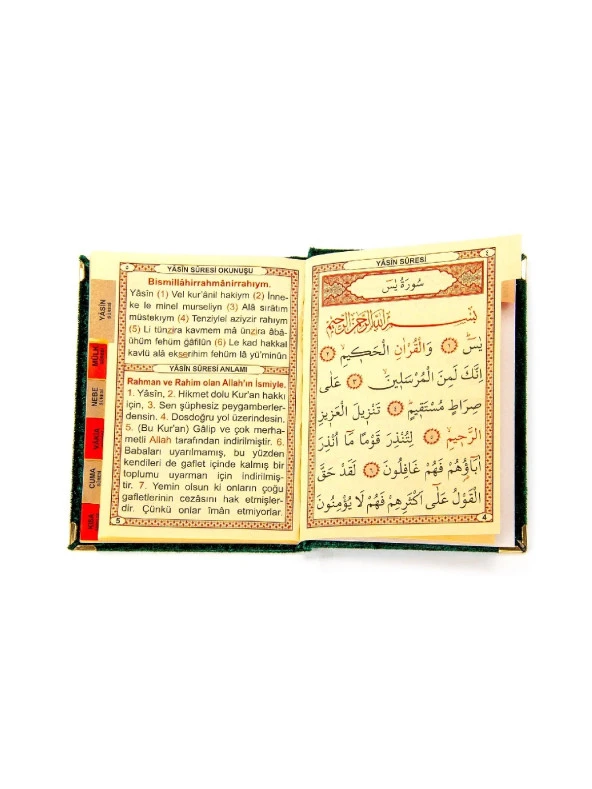 YÂSÎN SÛRESİ OKUNUŞU
Bismillâhirrahmânirrahıym.
Yâsîn (1) Vel kur'ânil hakiym (2) İnne-
ke le minel murseliyn (3) Alâ sırâtım
müstekıym (4) Tenziylel aziyzir rahıym
(5) Li tünzira kavmem mâ ünzira âbâ-
ühüm fehüm ğâfilûn (6) Le kad hakkal
kavlü alâ ekserihim fehüm lâ yü'minûn
YÂSÎN SÛRESİ ANLAMI
Rahman ve Rahim olan Allah'ın İsmiyle.
1. Yâsîn, 2. Hikmet dolu Kur'an hakkı
için, 3. Sen şüphesiz peygamberler-
densin. 4. Dosdoğru yol üzerindesin.
5. (Bu Kur'an) Gâlip ve çok merha-
metli Allah tarafından indirilmiştir. 6.
Babaları uyarılmamış, bu yüzden
kendileri de gaflet içinde kalmış bir
toplumu uyarman için indirilmiş-
tir. 7. Yemin olsun ki onların çoğu
gafletlerinin cezasını hak etmişler-
dir. Çünkü onlar îmân etmiyorlar.
5
YÂSÎN
SÛRESİ
MÜLK
NEBE
SÛRESİ
VAKIA
CUMA
NİSA
YÂSİN SÛRESİ
٤
سُورَةُ يٰسٓ
بِسْمِ اللّٰهِ الرَّحْمٰنِ الرَّحِيمِ
يٰسٓ ﴿١﴾ وَالْقُرْاٰنِ الْحَكِيمِ ﴿٢﴾
اِنَّكَ لَمِنَ الْمُرْسَلِينَ ﴿٣﴾ عَلٰى
صِرَاطٍ مُسْتَقِيمٍ ﴿٤﴾ تَنْزِيلَ الْعَزِيزِ
الرَّحِيمِ ﴿٥﴾ لِتُنْذِرَ قَوْمًا مَٓا اُنْذِرَ
اٰبَٓاؤُهُمْ فَهُمْ غَافِلُونَ ﴿٦﴾ لَقَدْ حَقَّ
الْقَوْلُ عَلٰٓى اَكْثَرِهِمْ فَهُمْ لَا يُؤْمِنُونَ
4